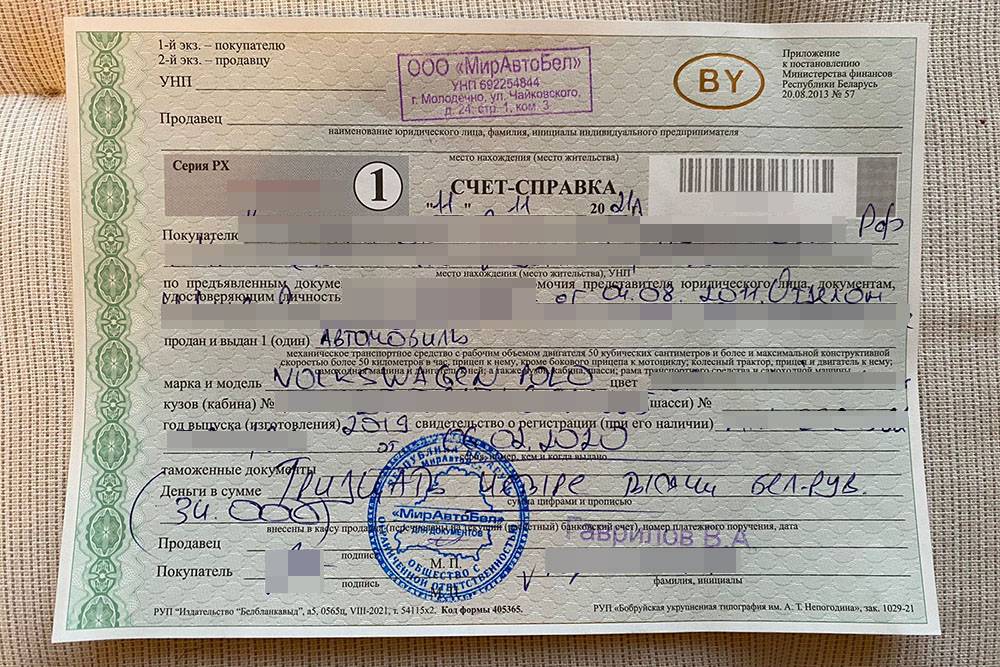 1-й экз. – покупателю
2-й экз. – продавцу
УНП
ООО «МирАвтоБел»
УНП 692254844
г. Молодечно, ул. Чайковского,
д. 24, стр. 1, ком. 3
BY
Приложение
к постановлению
Министерства финансов
Республики Беларусь
20.08.2013 № 57
Продавец
наименование юридического лица, фамилия, инициалы индивидуального предпринимателя
место нахождения (место жительства)
Серия РХ
1
СЧЕТ-СПРАВКА
"11" 11 2021
Покупателю
РФ
место нахождения (место жительства), УНП
по предъявленным докуме мочия представителя юридического лица, документам,
удостоверяющим личность от 04.08.2011
продан и выдан 1 (один) Автомобиль
механическое транспортное средство с рабочим объемом двигателя 50 кубических сантиметров и более и максимальной конструктивной
скоростью более 50 километров в час, прицеп к нему, кроме бокового прицепа к мотоциклу; колесный трактор, прицеп и двигатель к нему;
самоходная машина и двигатель к ней; а также кузов, кабина, шасси; рама транспортного средства и самоходной машины
марка и модель VOLKSWAGEN POLO цвет
кузов (кабина) № шасси) №
год выпуска (изготовления) 2019 свидетельство о регистрации (при его наличии)
от 06.02.2020
номер, кем и когда выдано
таможенные документы
Деньги в сумме Тридцать четыре тысячи бел. руб.
сумма цифрами и прописью
(34.000)
внесены в кассу продавца (перечислены на текущий (расчетный) банковский счет), номер платежного поручения, дата
Продавец
Гаврилов В.А
подпись
М. П.
Покупатель
подпись
М. П.
фамилия, инициалы
МирАвтоБел
«МирАвтоБел»
ДЛЯ ДОКУМЕНТОВ
ОБЩЕСТВО С ОГРАНИЧЕННОЙ ОТВЕТСТВЕННОСТЬЮ
РУП "Издательство "Белбланкавыд", а5, 0565ц, VIII-2021, т. 54115х2. Код формы 405365.
РУП «Бобруйская укрупненная типография им. А. Т. Непогодина», зак. 1029-21